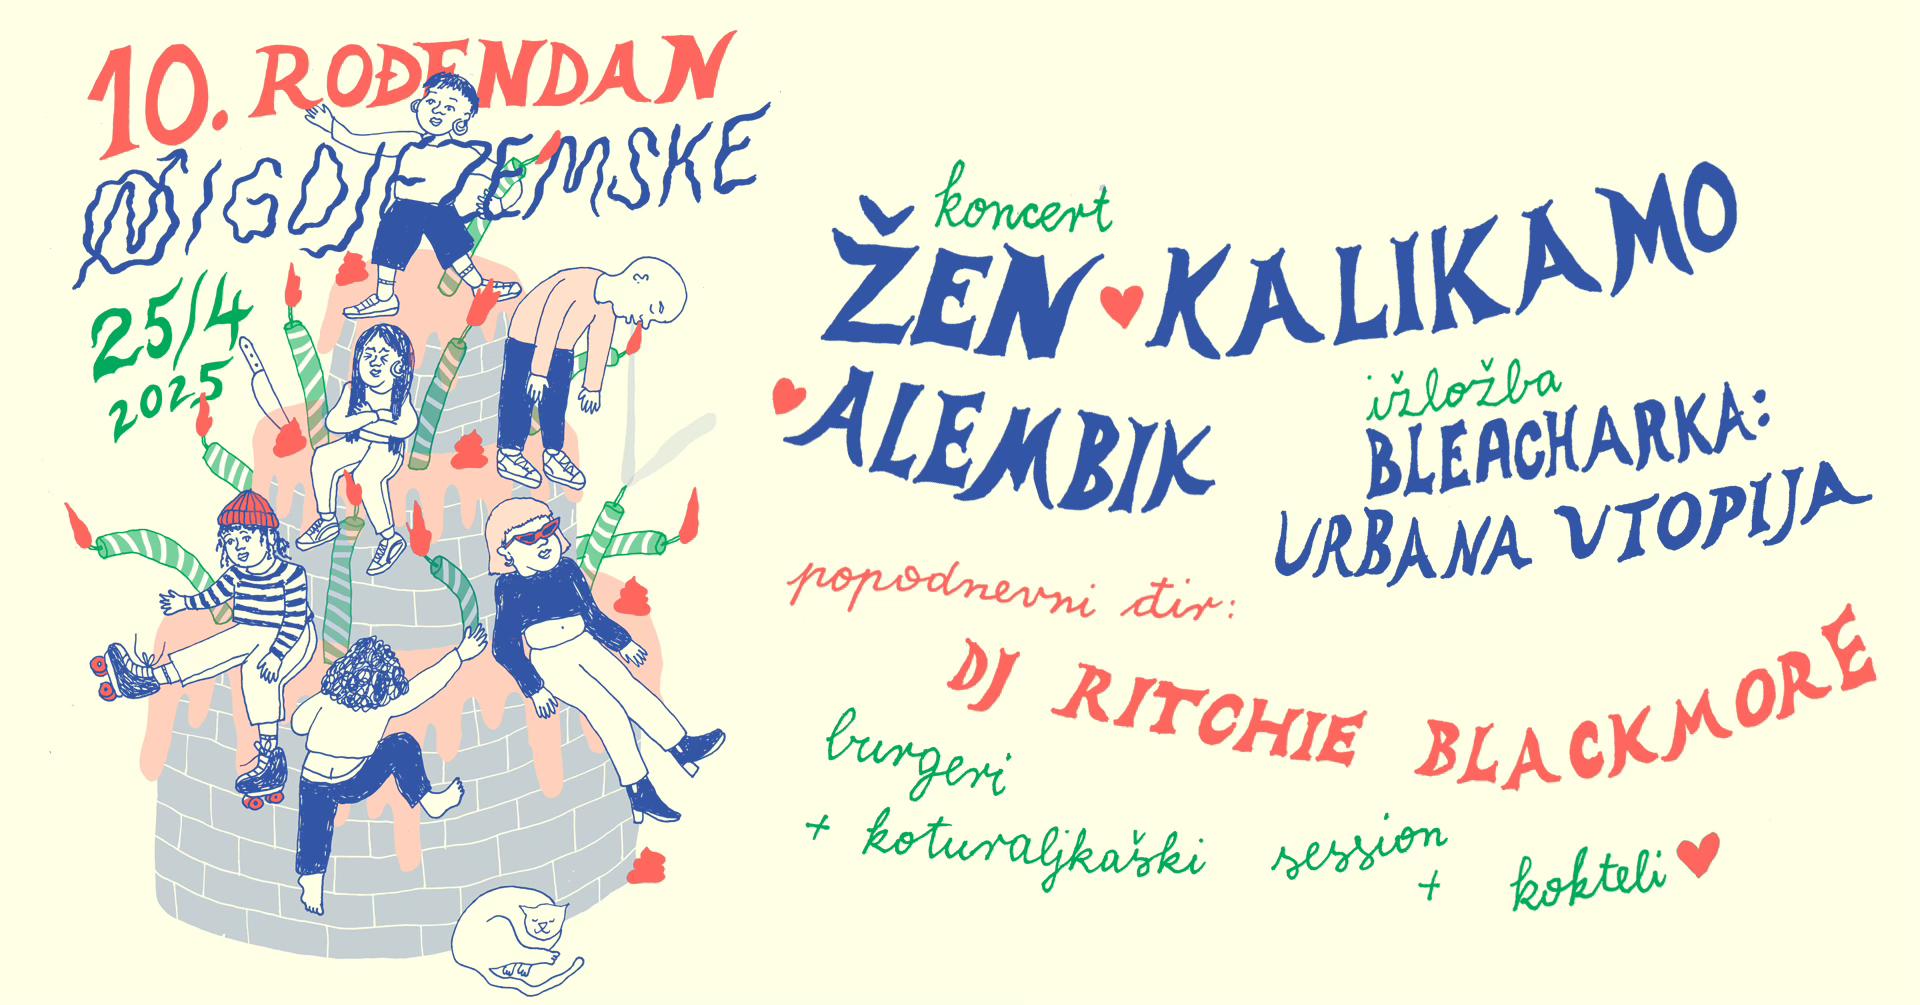 10. ROĐENDAN
NIGDJEZEMSKE
25/4
2025
koncert
ŽEN ♥ KALIKAMO
♥ ALEMBIK
izložba
BLEACHARKA:
URBANA UTOPIJA
popodnevni đir:
DJ RITCHIE BLACKMORE
burgeri
+ koturaljkaški session
+ kokteli ♥